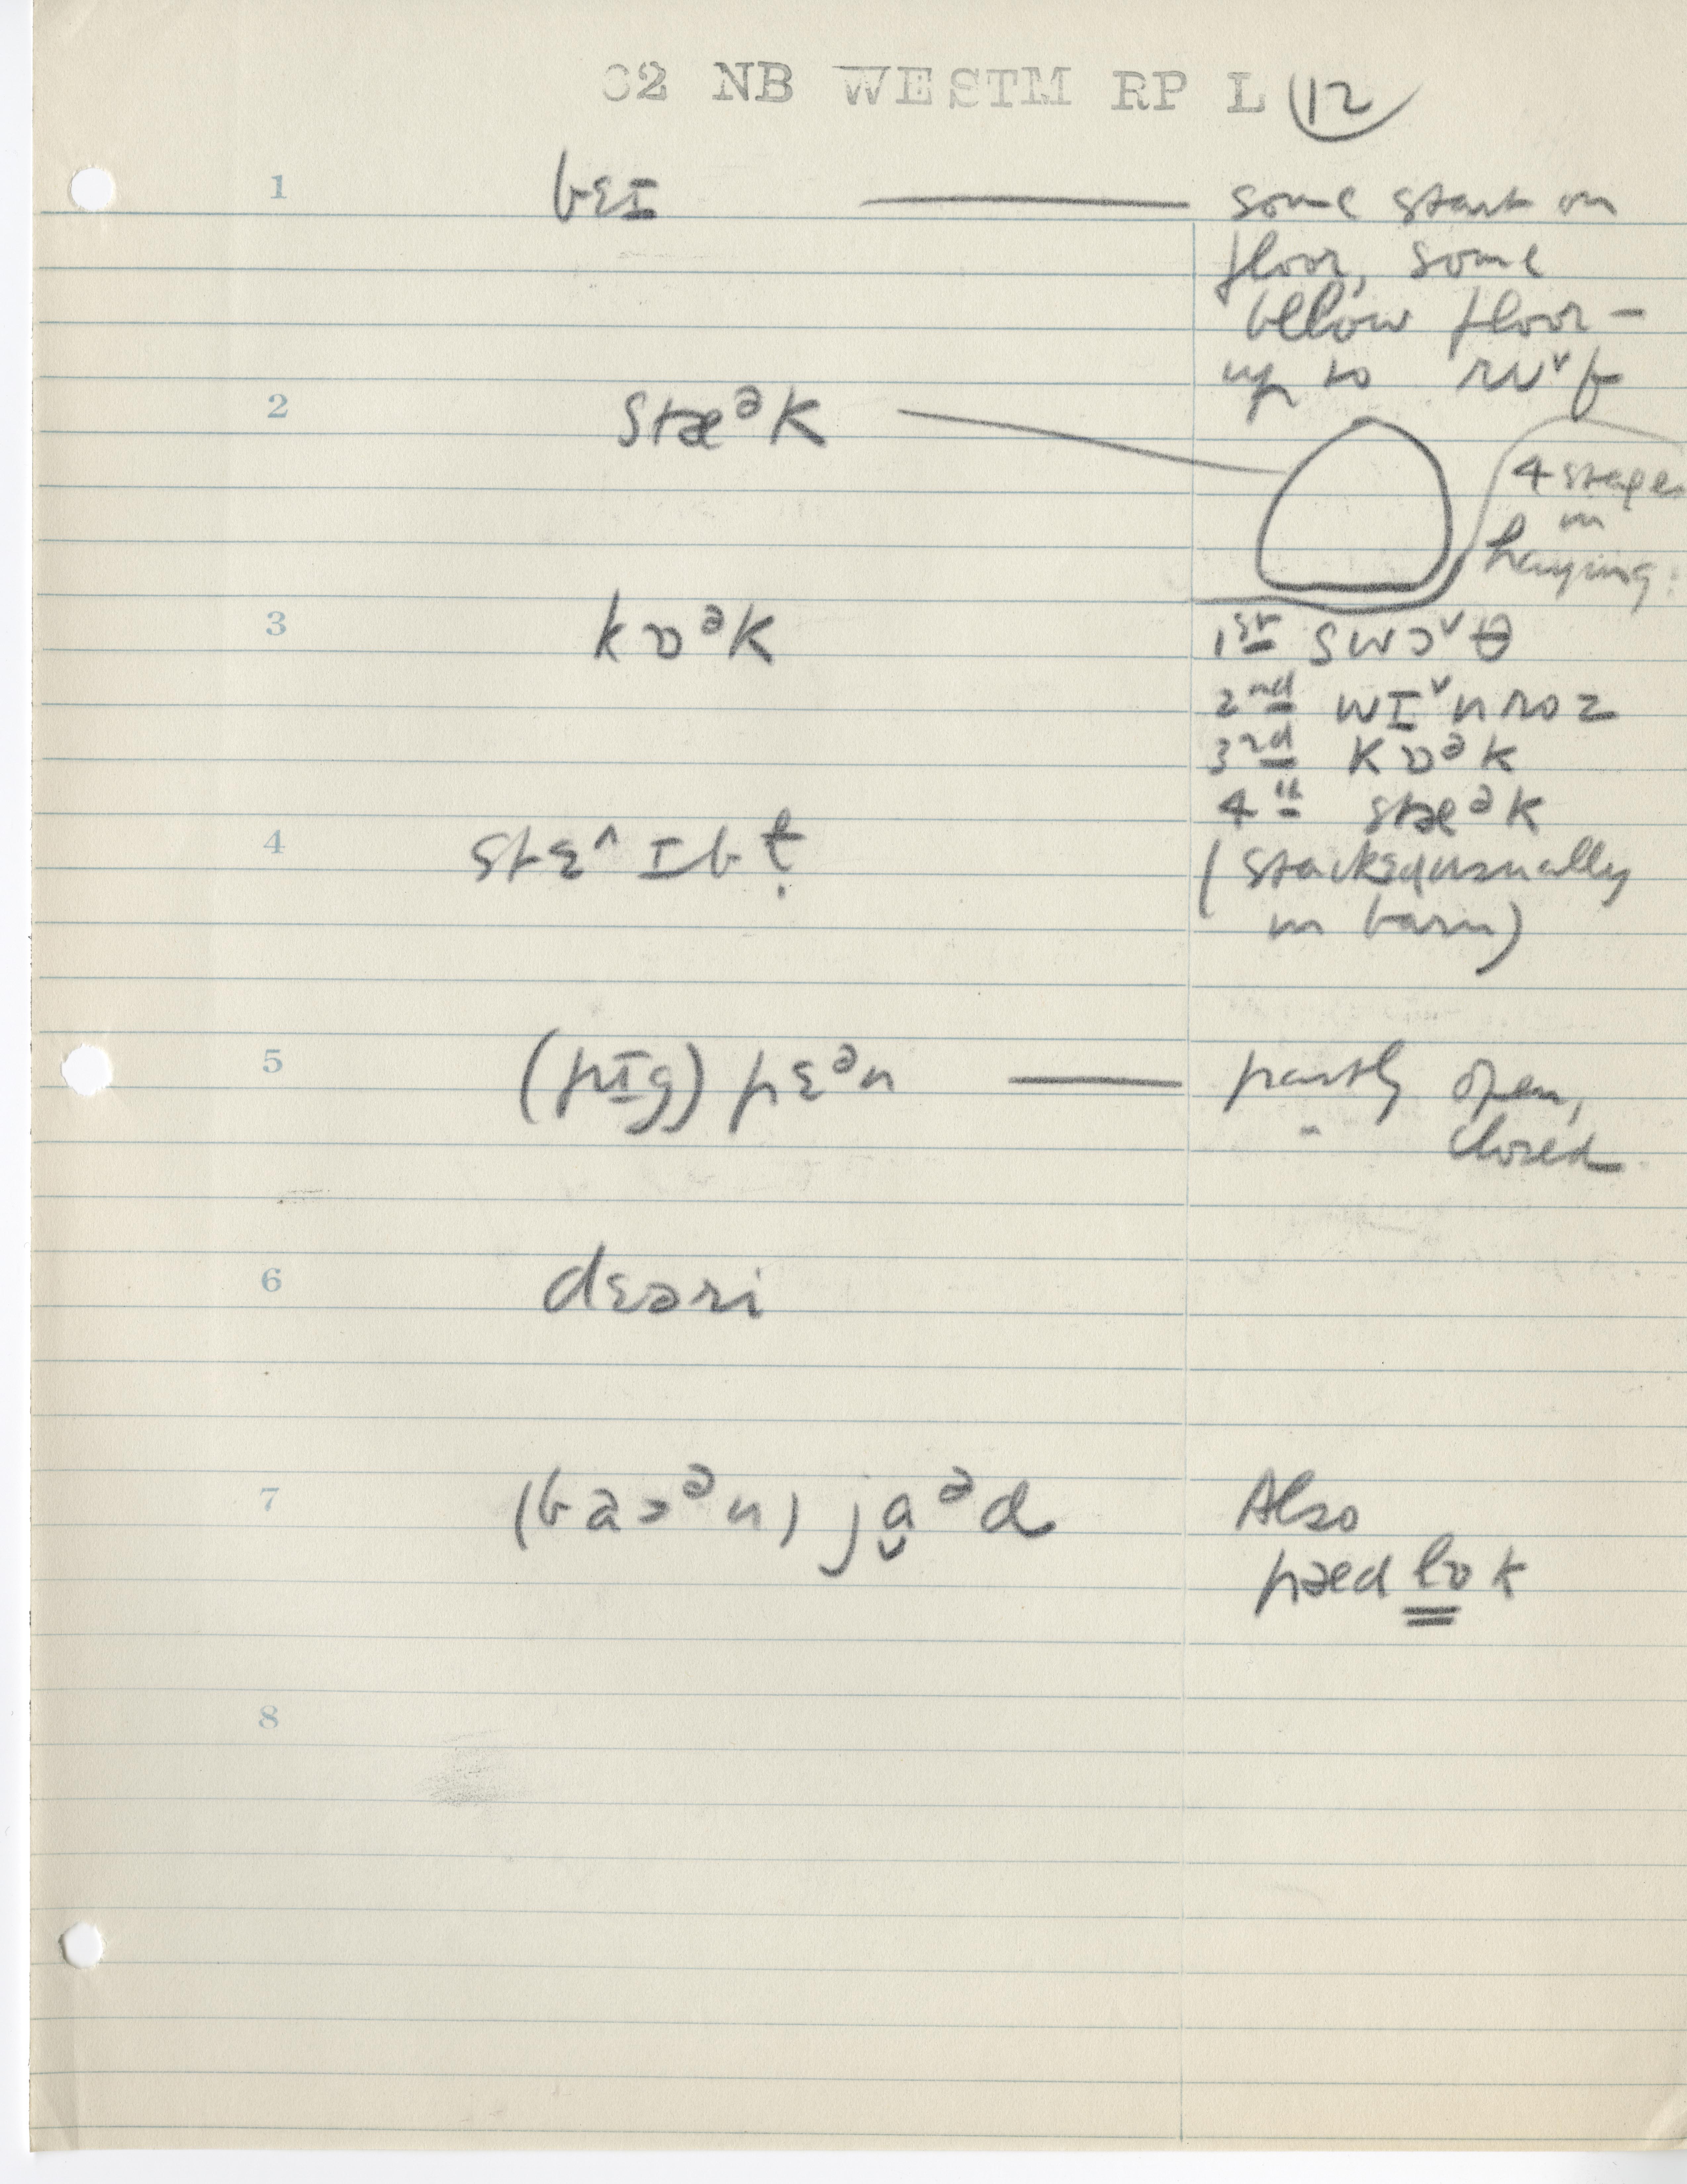 C2 NB WESTM RP L 12
1 bɛɪ some start on
floor, some
below floor –
up to ruᵛf
2 stæᵊk
4 stages
in
haying:
3 kɒᵊk
1st swɔᵛθ
2nd wɪᵛnroz
3rd kɒᵊk
4th stæᵊk
(stacked usually
in barn)
4 stɛ^ɪbɫ̣
5 (pɪg) pɛᵊn partly open,
" closed
6 dɛəri
7 (baɔᵊn) ja̬ᵊd Also
pæd lɒk
8